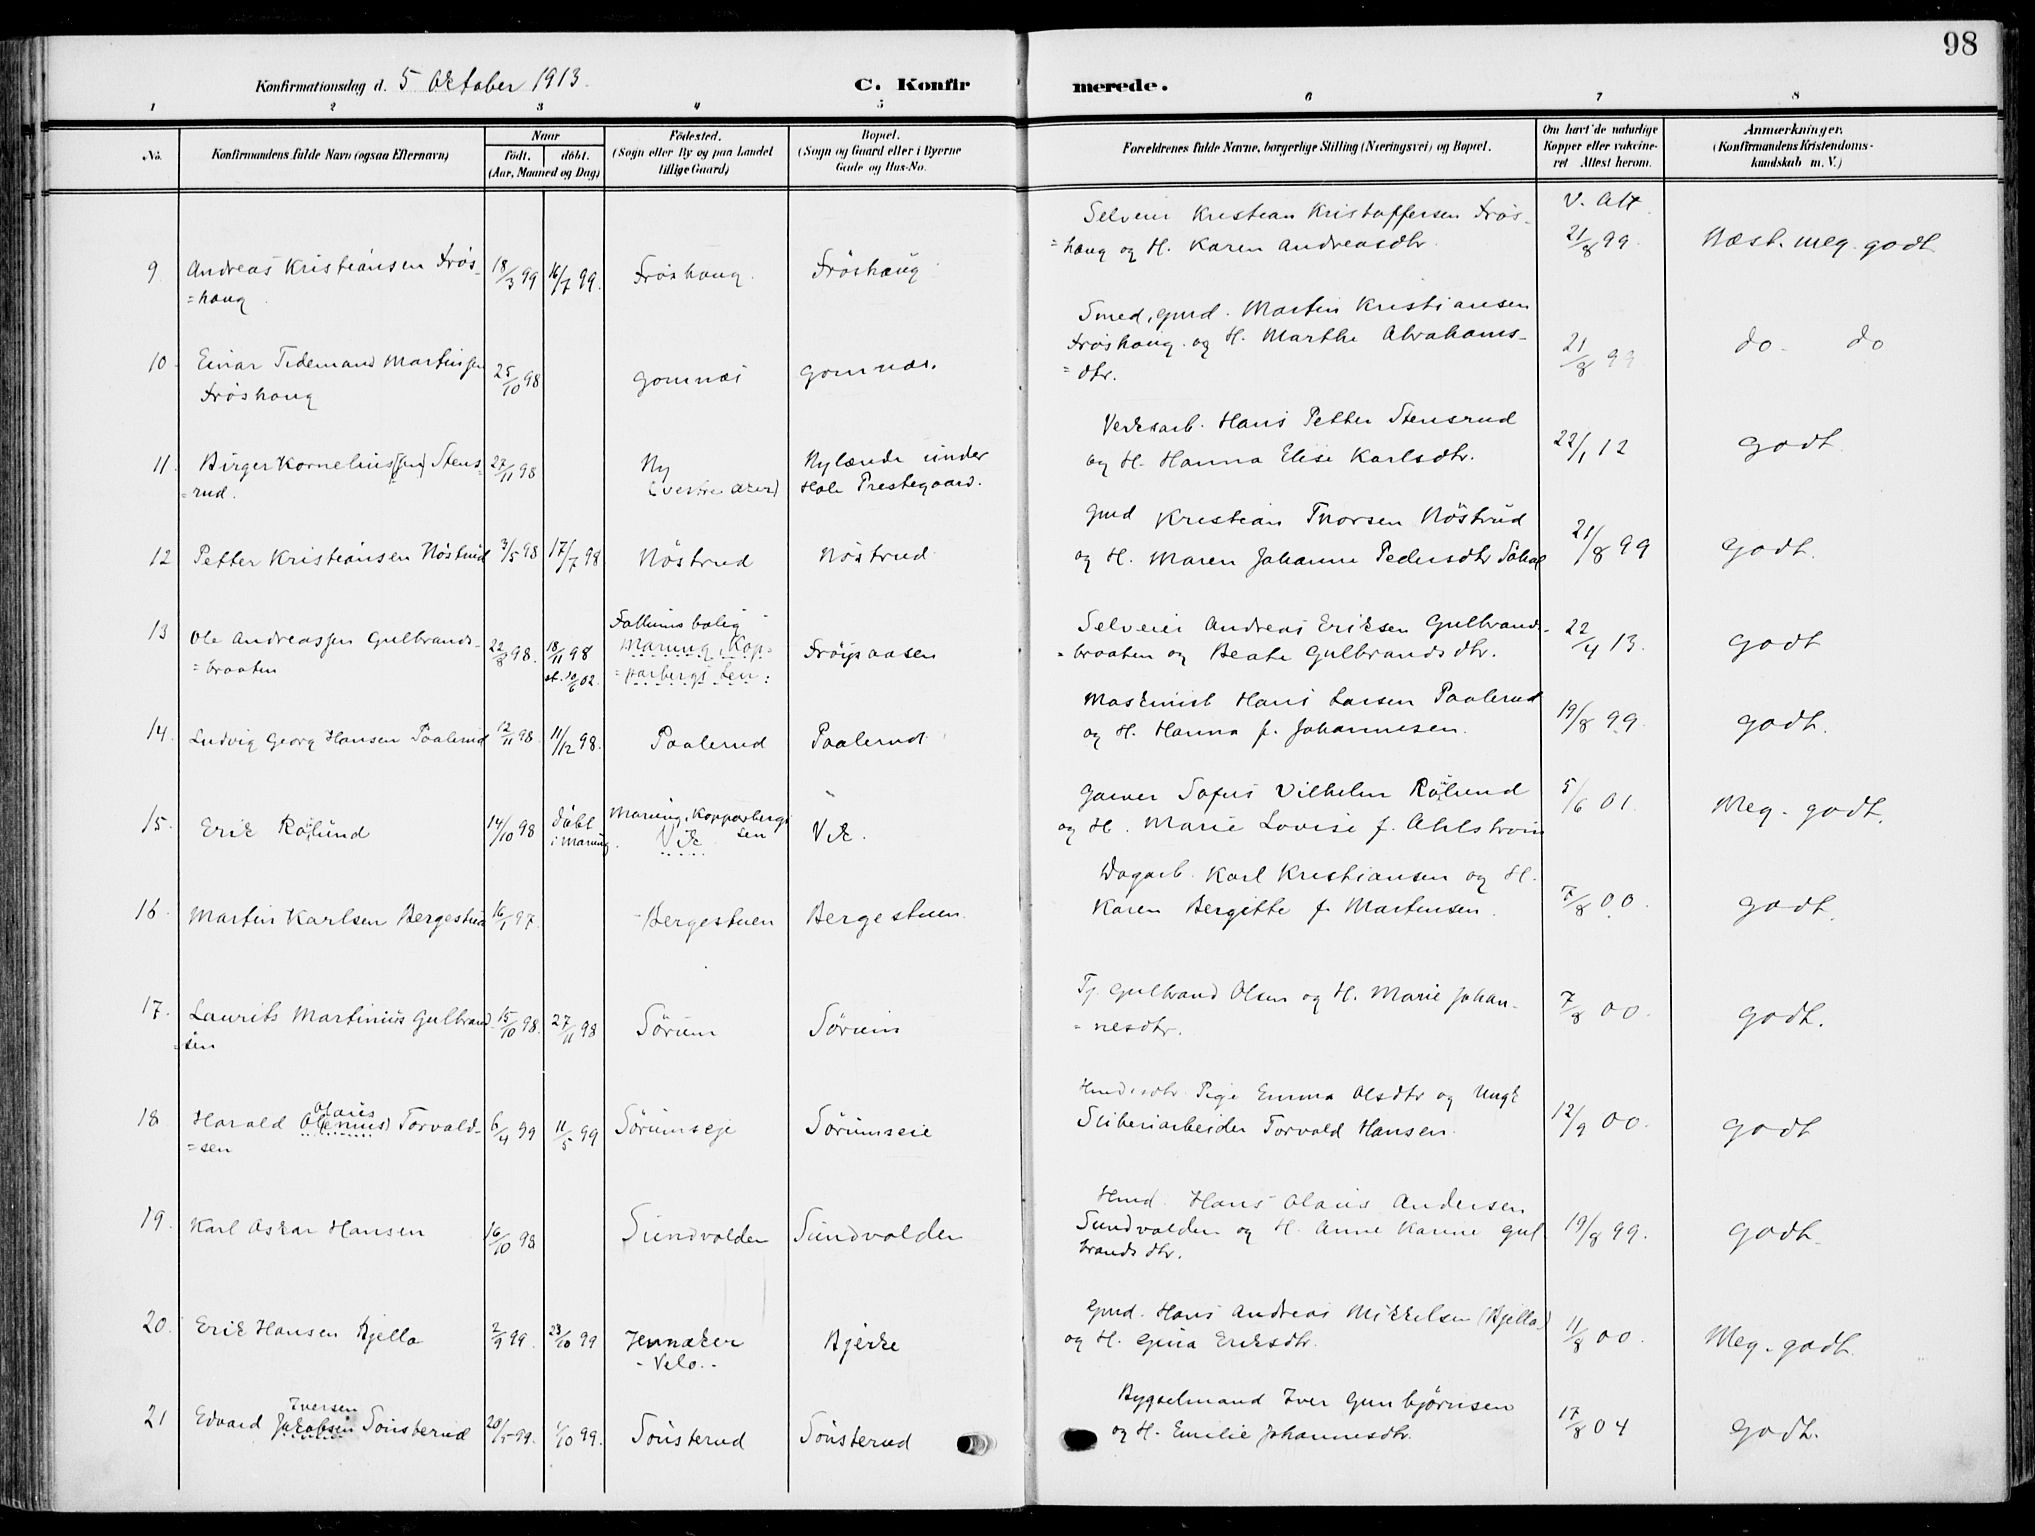 98
Konfirmationsdag d. 5 Oktober 1913.
C. Konfirmerede.
1 2 3 4 5 6 7 8
No. Konfirmandens fulde Navn (ogsaa Efternavn) Naar født. døbt. (Aar, Maaned og Dag) Fødested. (Sogn eller By og paa Landet tillige Gaard) Bopæl. (Sogn og Gaard eller i Byerne Gade og Hus-No. Forældrenes fulde Navne, borgerlige Stilling (Næringsvei) og Bopæl. Om havt de naturlige Kopper eller vakcineret Attest herom. Anmærkninger. (Konfirmandens Kristendomskundskab m. V.)
9. Andreas Kristiansen Frøs= =haug 18/3 99 16/7 99. Frøshaug. Frøshaug Selveier Kristian Kristoffersen Frøs= =haug og H. Karen Andreasdtr. V. Att 21/8 99. Næst. meg. godt
10. Einar Tidemand Martinsen Frøshaug 25/10 98 Gomnæs Gomnæs. Smed, gmd. Martin Kristiansen Frøshaug og H. Marthe Abrahams= =dtr. 21/8 99 do. do
11. Birger Kornelius(sen) Stens= =rud. 27/11 98 Ny (vestre Aker) Nylænde under Hole Prestegaard. Verksarb. Hans Petter Stensrud og H. Hanna Elise Karlsdtr. 22/1 12 Godt
12 Petter Kristiansen Nøstrud 3/5 98 17/7 98 Nøstrud Nøstrud Gmd Kristian Thorsen Nøstrud og H. Maren Johanne Pedersdtr 21/8 99 Godt.
13 Ole Andreassen Gulbrands= =braaten 22/8 98. 18/11 98 Marung, Kop= =parbergs Len: Frøysaasen Selveier Andreas Eriksen Gulbrands= =braaten og Beate Gulbrandsdtr. 22/4 13. Godt
14. Ludvig Georg Hansen Paalerud 12/11 98. 11/12 98. Paalerud Paalerud Maskinist Hans Larsen Paalerud og H. Hanna f. Johannesen. 19/8 99. Godt.
15. Erik Rölund 14/10 98 døbt i Marung Marung, Kopparbergs Len Vik Vik. Garver Sofus Vilhelm Rölund og H. Marie Lovise f. Ahlstrøm 5/6 01. Meg. godt.
16. Martin Karlsen Bergestua 16/1 97. Bergestuen Bergestuen. Dagarb. Karl Kristiansen og H. Karen Bergitte f. Martinsen. 7/8 00. Godt.
17. Laurits Martinius Gulbrand= =sen 15/10 98. 27/11 98 Sørum Sørum Tj. Gulbrand Olsen og H. Marie Johan= =nesdtr. 7/8 00. Godt.
18. Harald Olaus (Olenius) Torvald= =sen 6/4 99 11/5 99 Sørumseje Sørumseie Pige Emma Olsdtr og Ungk Sliberiarbeider Torvald Hansen. 12/9 00. Godt
19. Karl Oskar Hansen 16/10 98 Sundvolden Sundvolden Hmd. Hans Olaus Andersen Sundvolden og H. Anne Karine Gul brandsdtr. 19/8 99. Godt.
20. Erik Hansen Bjella 2/9 99. 23/10 99 Jennaker Velo. Bjerke Gmd. Hans Andreas Mikkelsen (Bjella) og H. Gina Eriksdtr. 11/8 00. Meg. godt.
21 Edvard Iversen Jakobsen Sønsterud 20/5 99. 1/10 99. Sønsterud Sønsterud Bygselmand Iver Gunbjørnsen og H. Emilie Johannesdtr. 17/8 04 Godt.